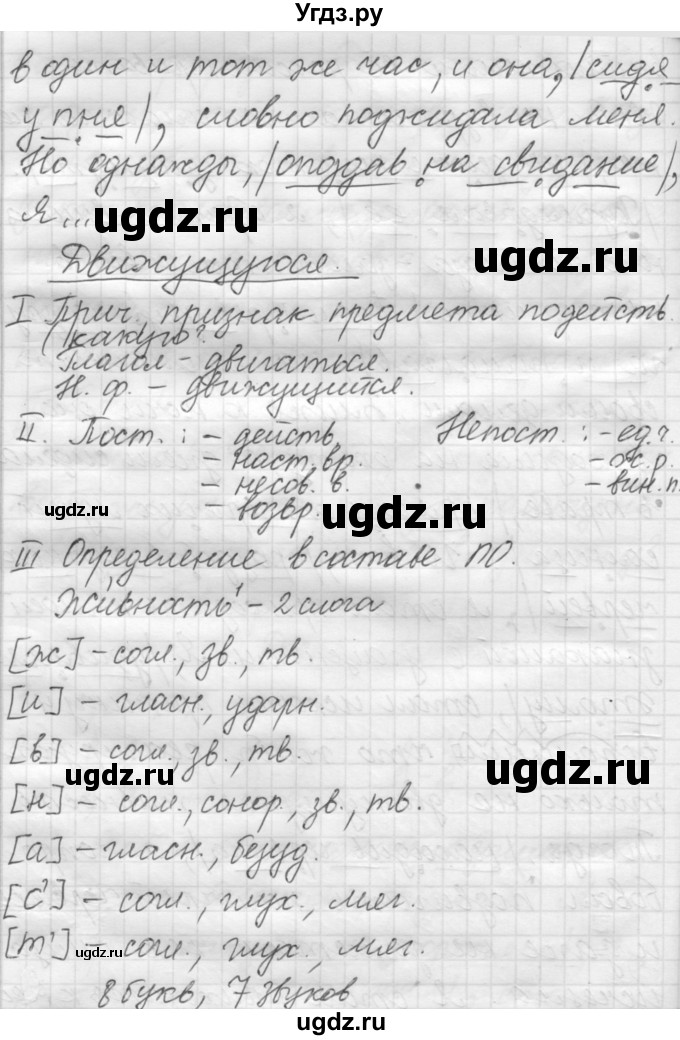 Угдз.ру
в один и тот же час, и она, |сидя
у пня|, словно поджидала меня.
Но однажды, |опоздав на свидание|,
я...
ugdz.ru
ugdz.ru
Движущуюся.
I Прич., признак предмета по действ.
(какую?
Глагол - двигаться.
Н. ф. - движущийся.
II. Пост.: - действ. Непост.: - ед.ч.
- наст. вр. - ж.р.
- несов. в. - вин.п.
- возвр.
ugdz.ru
ugdz.ru
III Определение в составе ПО.
Живность - 2 слога
[ж] - согл., зв., тв.
[и] - гласн., ударн.
[в] - согл., зв., тв.
ugdz.ru
ugdz.ru
[н] - согл., сонор., зв., тв.
[а] - гласн., безуд.
[с'] - согл., глух., мяг.
[т'] - согл., глух., мяг.
ugdz.ru
8 букв, 7 звуков
ugdz.ru